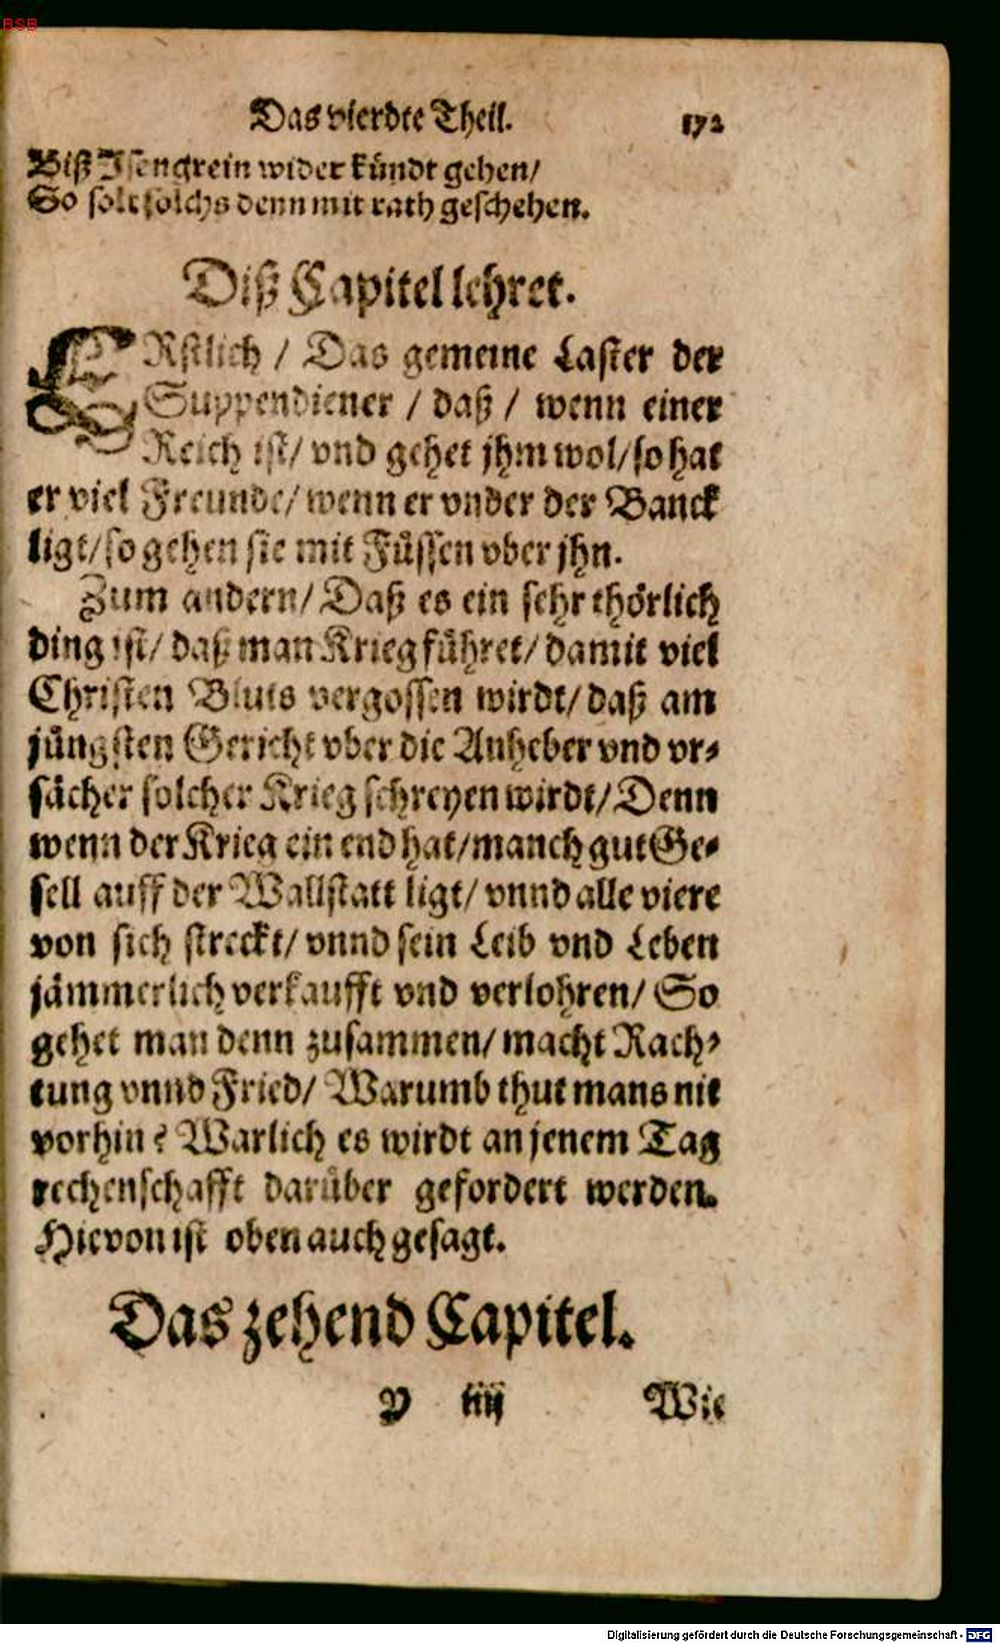 BSB
Das vierdte Theil. 172
Biß Isengrein wider kündt gehen/
So solt solchs denn mit rath geschehen.
Diß Capitel lehret.
ERstlich / Das gemeine Laster der
Suppendiener / daß / wenn einer
Reich ist/ vnd gehet jhm wol/ so hat
er viel Freunde/ wenn er vnder der Banck
ligt/ so gehen sie mit Füssen vber jhn.
Zum andern/ Daß es ein sehr thörlich
ding ist/ daß man Krieg führet/ damit viel
Christen Bluts vergossen wirdt/ daß am
jüngsten Gericht vber die Anheber vnd vr-
sächer solcher Krieg schreyen wirdt/ Denn
wenn der Krieg ein end hat/ manch gut Ge-
sell auff der Wallstatt ligt/ vnnd alle viere
von sich streckt/ vnnd sein Leib vnd Leben
jämmerlich verkaufft vnd verlohren/ So
gehet man denn zusammen/ macht Rach-
tung vnnd Fried/ Warumb thut mans nit
vorhin? Warlich es wirdt an jenem Tag
rechenschafft darüber gefordert werden.
Hievon ist oben auch gesagt.
Das zehend Capitel.
Y iiij Wie
Digitalisierung gefördert durch die Deutsche Forschungsgemeinschaft - DFG